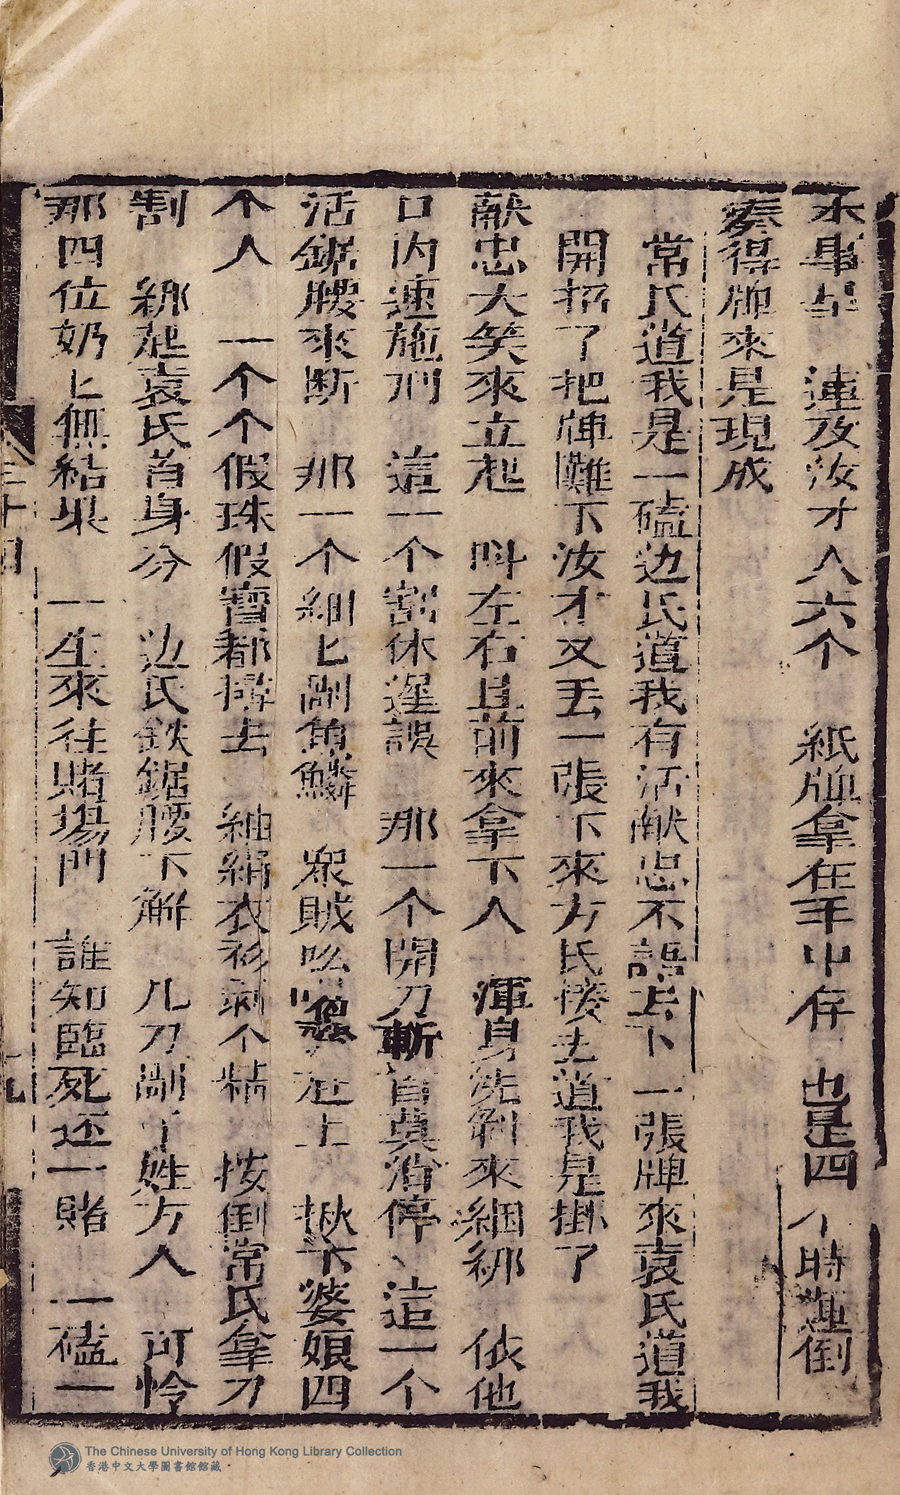 蓮及汝才人六个　紙牌拿在手中存　也是四个時運倒
奏得牌來是現成
常氏道我是一磕边氏道我有活献忠不語丟下一張牌來袁氏道我
開招了把牌難下汝才又丟一張下來方氏接去道我是掛了
献忠大笑來立起　呌左右且前來拿下人　渾身先剥來綑綁　依他
口内速施刑　這一个割休遲誤　那一个開刀斬首莫消停、這一个
活鋸腰來断　那一个細匕剮魚鱗　衆賊吆上　揪下婆娘四
个人　一个个假珠假寶都去　紬絹衣衫剥个精　按倒常氏拿刀
割　綁起袁氏首身分　边氏鉄鋸腰下解　几刀剮了姓方人　可怜
那四位奶匕無結果　一生來往賭場門　誰知臨死还一賭　一磕一
三十四
The Chinese University of Hong Kong Library Collection
香港中文大學圖書館館藏